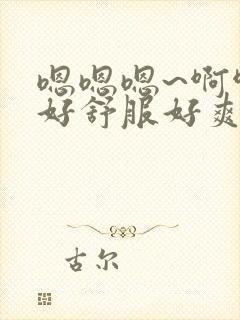 嗯嗯嗯~啊
好舒服好爽
古尔